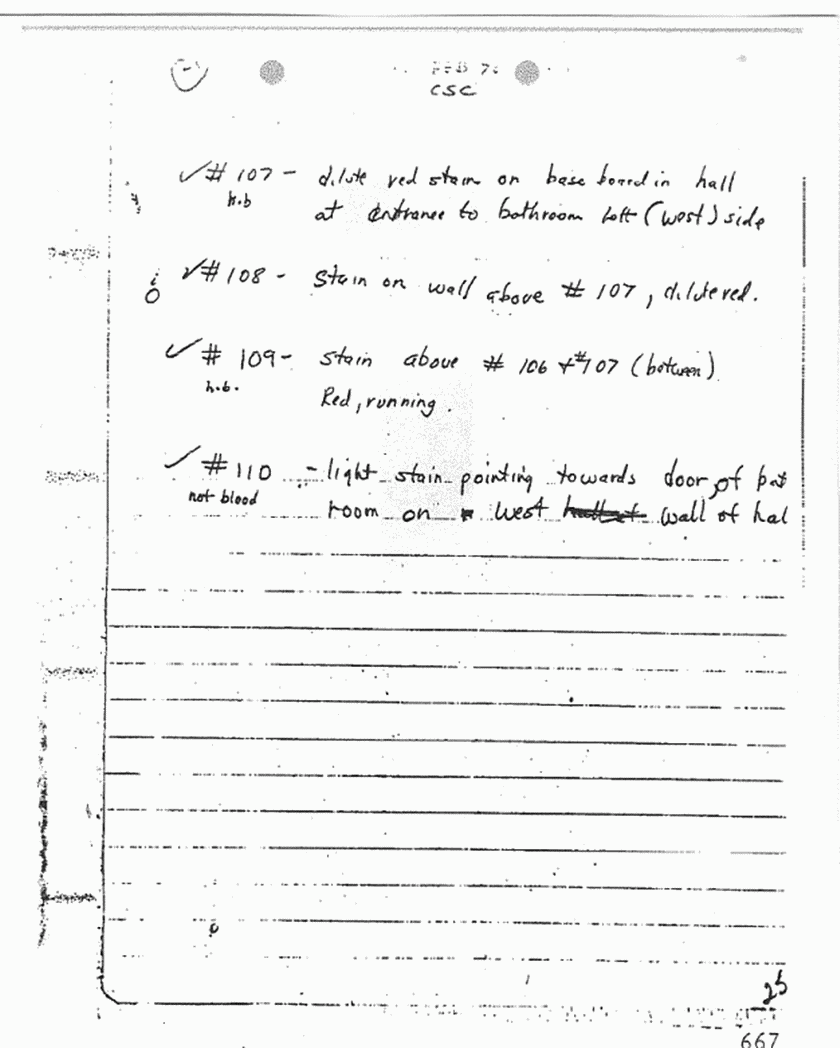 FEB 70
CSC
✓ # 107 - dilute red stain on base board in hall
h.b at entrance to bathroom left (west) side
✓ # 108 - stain on wall above # 107, dilute red.
✓ # 109 - stain above # 106 + #107 (between)
h.b. Red, running.
✓ # 110 - light stain pointing towards door of bat
not blood room on west wall of hal
667